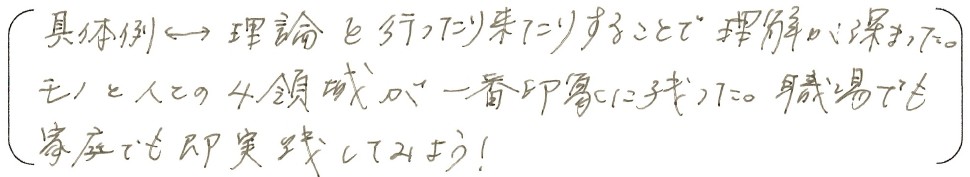 具体例←→理論を行ったり来たりすることで理解が深まった。
モノと人との4領域が一番印象に残った。職場でも
家庭でも即実践してみよう!